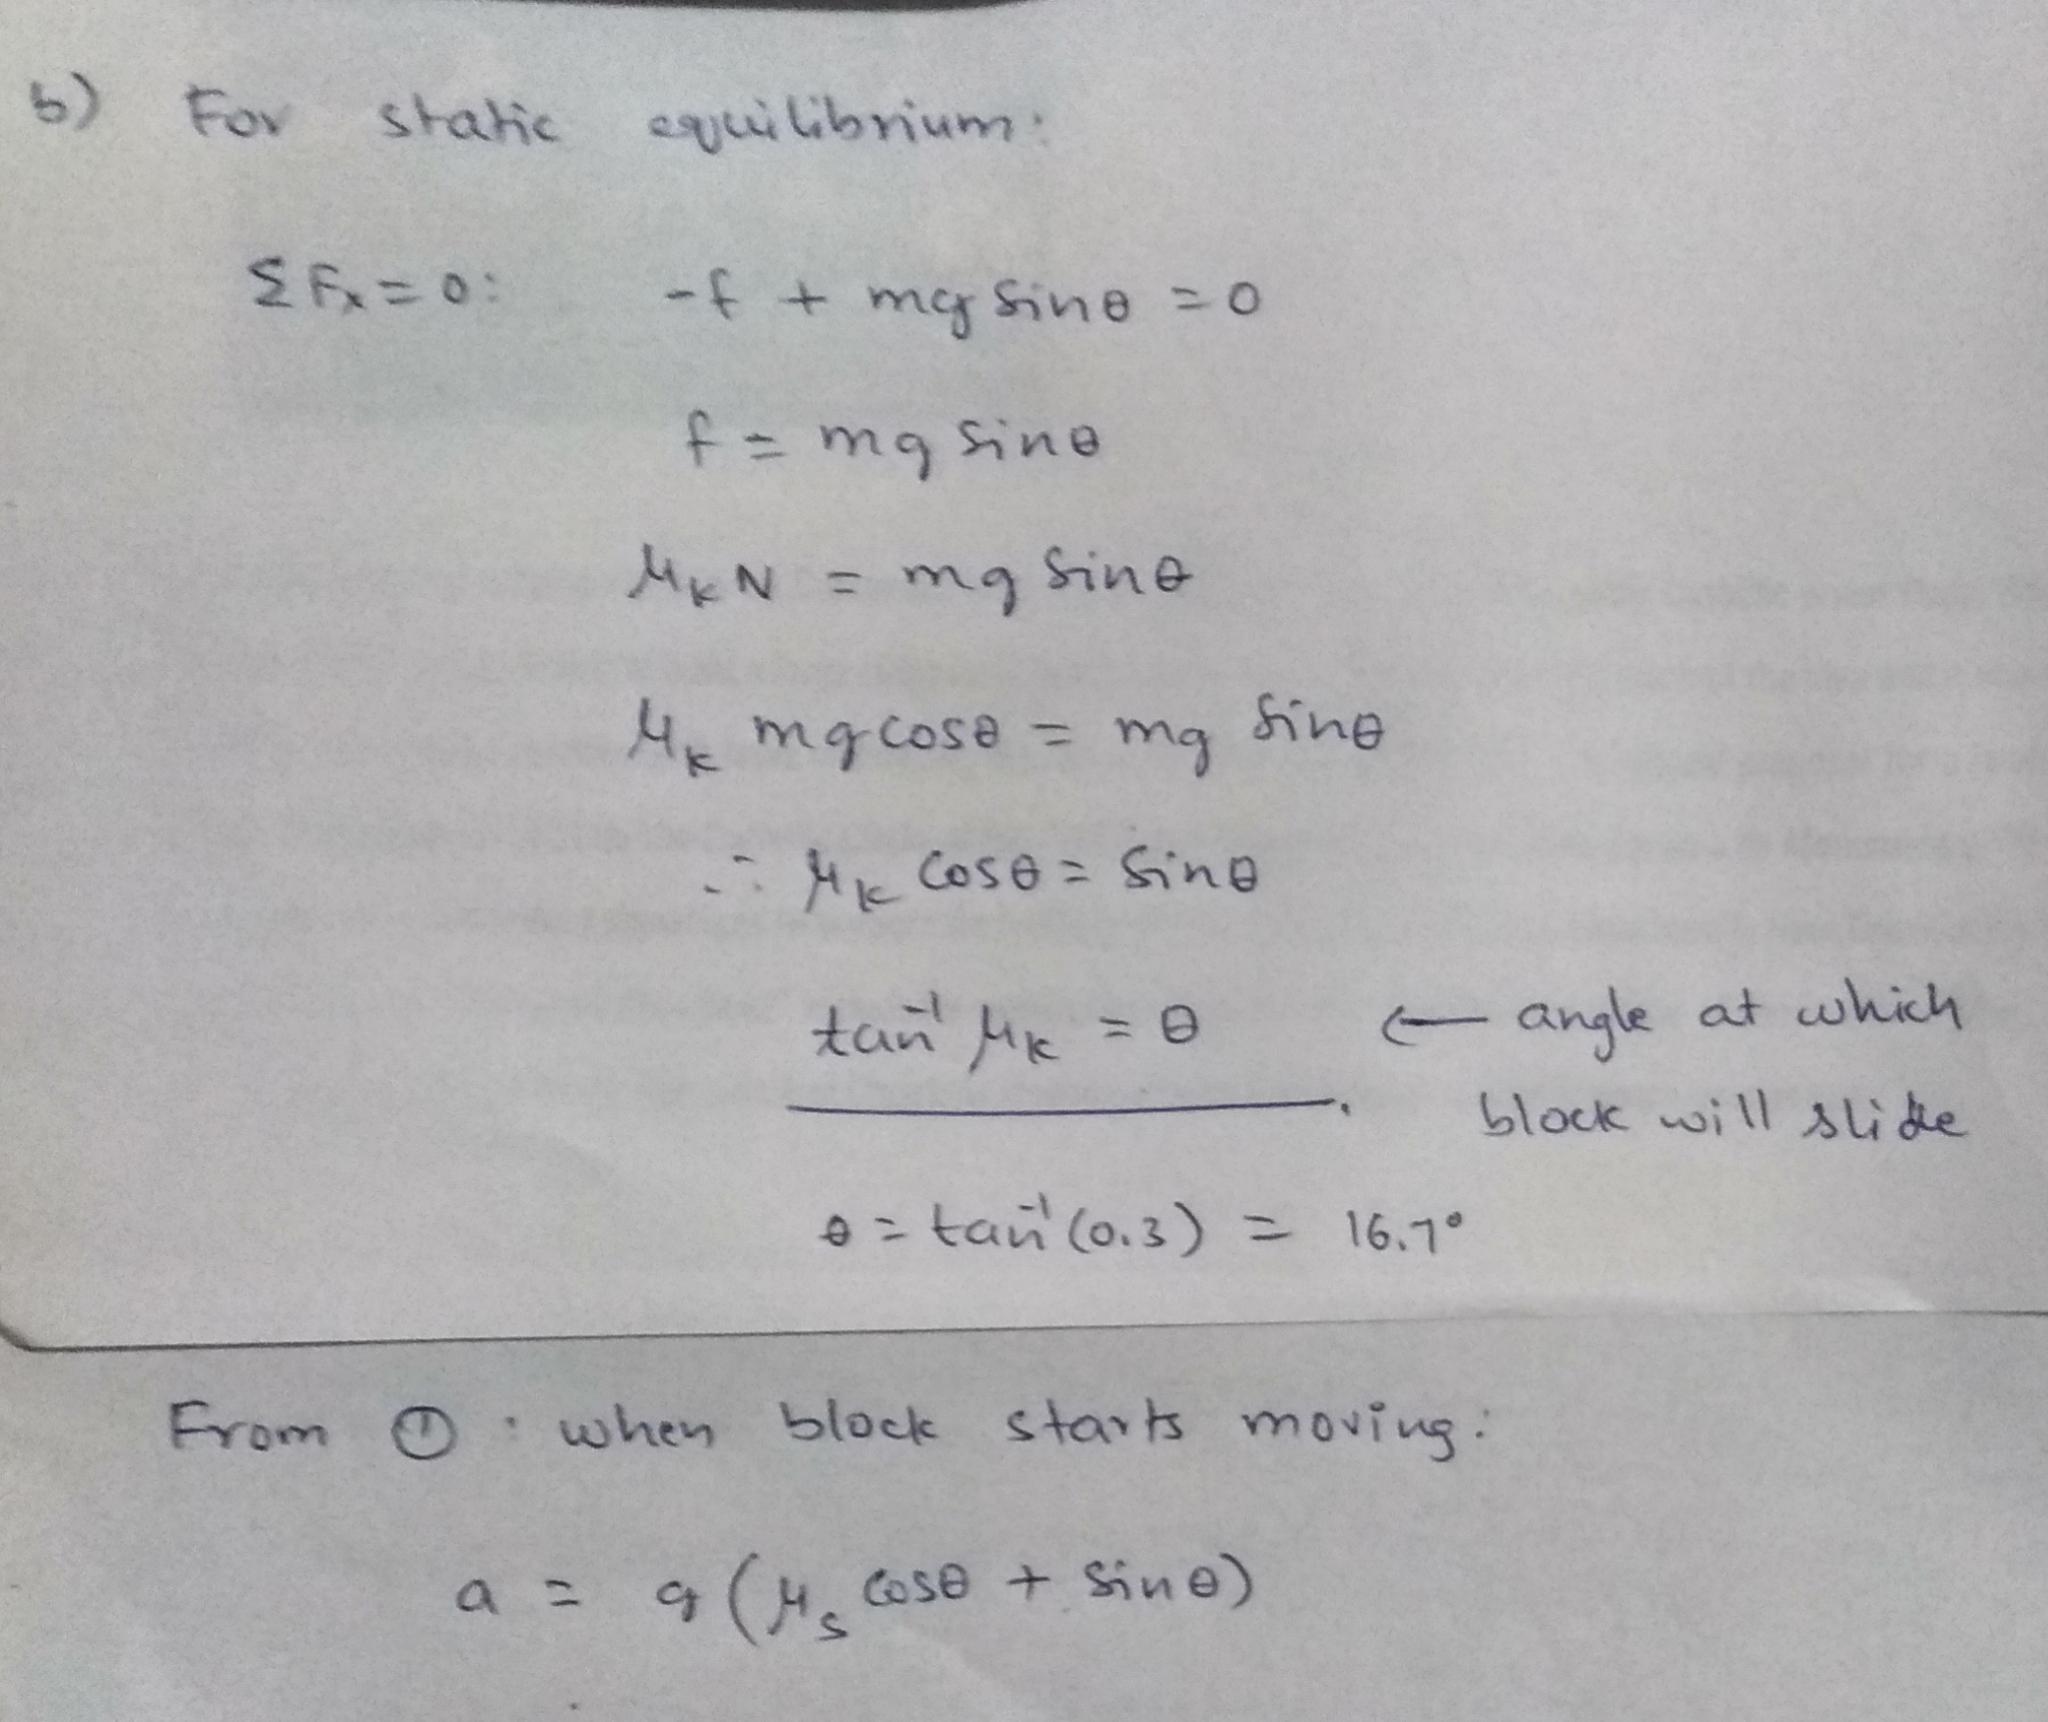 b) For static equilibrium:
ΣFx = 0: -f + mg sinθ = 0
f = mg sinθ
μk N = mg sinθ
μk mg cosθ = mg sinθ
∴ μk cosθ = sinθ
tan⁻¹ μk = θ ← angle at which
block will slide
θ = tan⁻¹(0.3) = 16.7°
From ①: when block starts moving:
a = g(μs cosθ + sinθ)